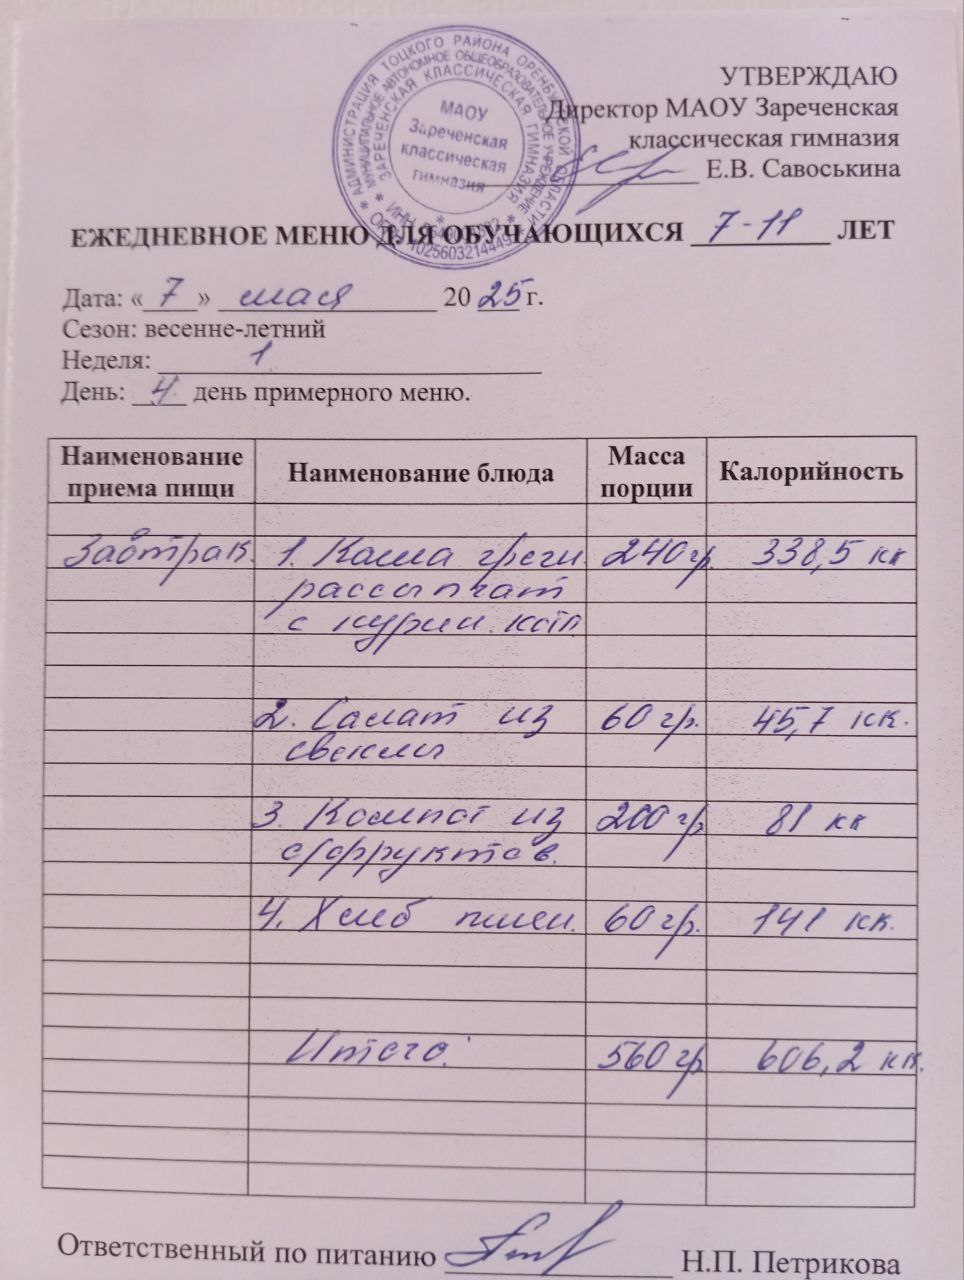 АДМИНИСТРАЦИЯ ТОЦКОГО РАЙОНА ОРЕНБУРГСКОЙ ОБЛАСТИ
МУНИЦИПАЛЬНОЕ АВТОНОМНОЕ ОБЩЕОБРАЗОВАТЕЛЬНОЕ УЧРЕЖДЕНИЕ
ЗАРЕЧЕНСКАЯ КЛАССИЧЕСКАЯ ГИМНАЗИЯ
МАОУ
Зареченская
классическая
гимназия
УТВЕРЖДАЮ
Директор МАОУ Зареченская
классическая гимназия
Е.В. Савоськина
ЕЖЕДНЕВНОЕ МЕНЮ ДЛЯ ОБУЧАЮЩИХСЯ 7-11 ЛЕТ
Дата: «7» мая 20 25 г.
Сезон: весенне-летний
Неделя: 1
День: 4 день примерного меню.
Наименование приема пищи Наименование блюда Масса порции Калорийность
Завтрак. 1. Каша гречн 240 гр. 338,5 кк
рассыпчат
с курин. котл
2. Салат из 60 гр. 45,7 кк.
свеклы
3. Компот из 200 гр 81 кк
с/фруктов.
4. Хлеб пшен. 60 гр. 141 кк.
Итого: 560 гр 606,2 кк.
Ответственный по питанию Н.П. Петрикова